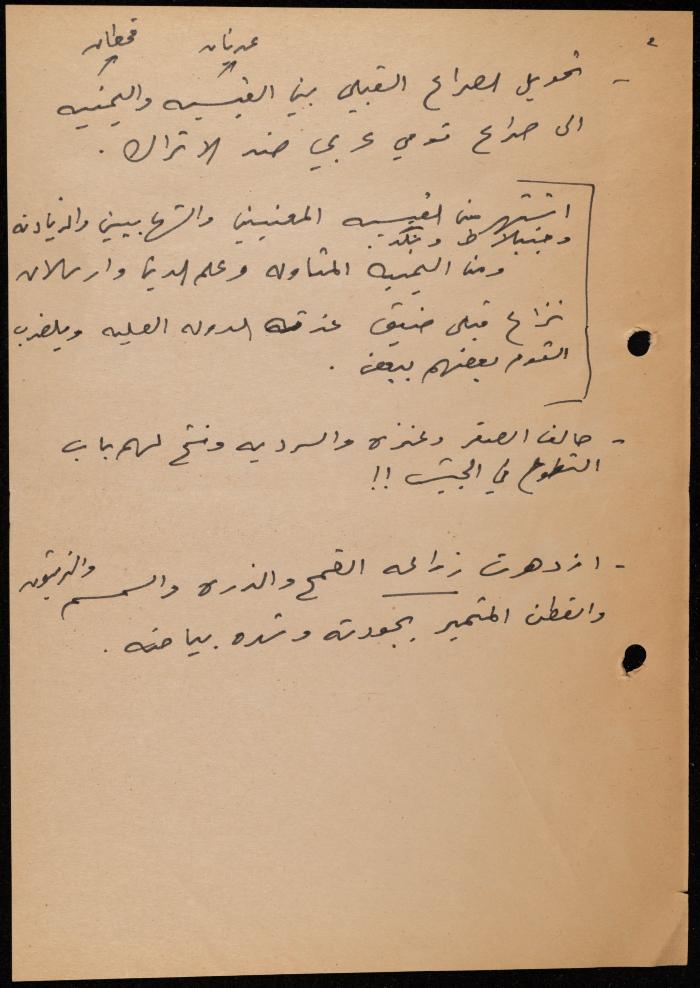 ٢
عدنان قحطان
- تحويل الصراع القبلي بين القيسيه واليمنيه
الى صراع قومي عربي ضد الاتراك .
اشتهر من القيسيه المعنيين والشهابيين والزيادنه
وجنبلاط ونكد .
ومن اليمنيه المتاوله وعلم الدين وارسلان
نزاع قبلي ضيق غذته الدوله العليه ويلضرب
القوم بعضهم ببعض .
- حالف الصقر وعنزه والسرديه وفتح لهم باب
التطوع في الجيش !!
- ازدهرت زراعه القمح والذره والسمسم والزيتون
والقطن المتميز بجودته وشده بياضه .